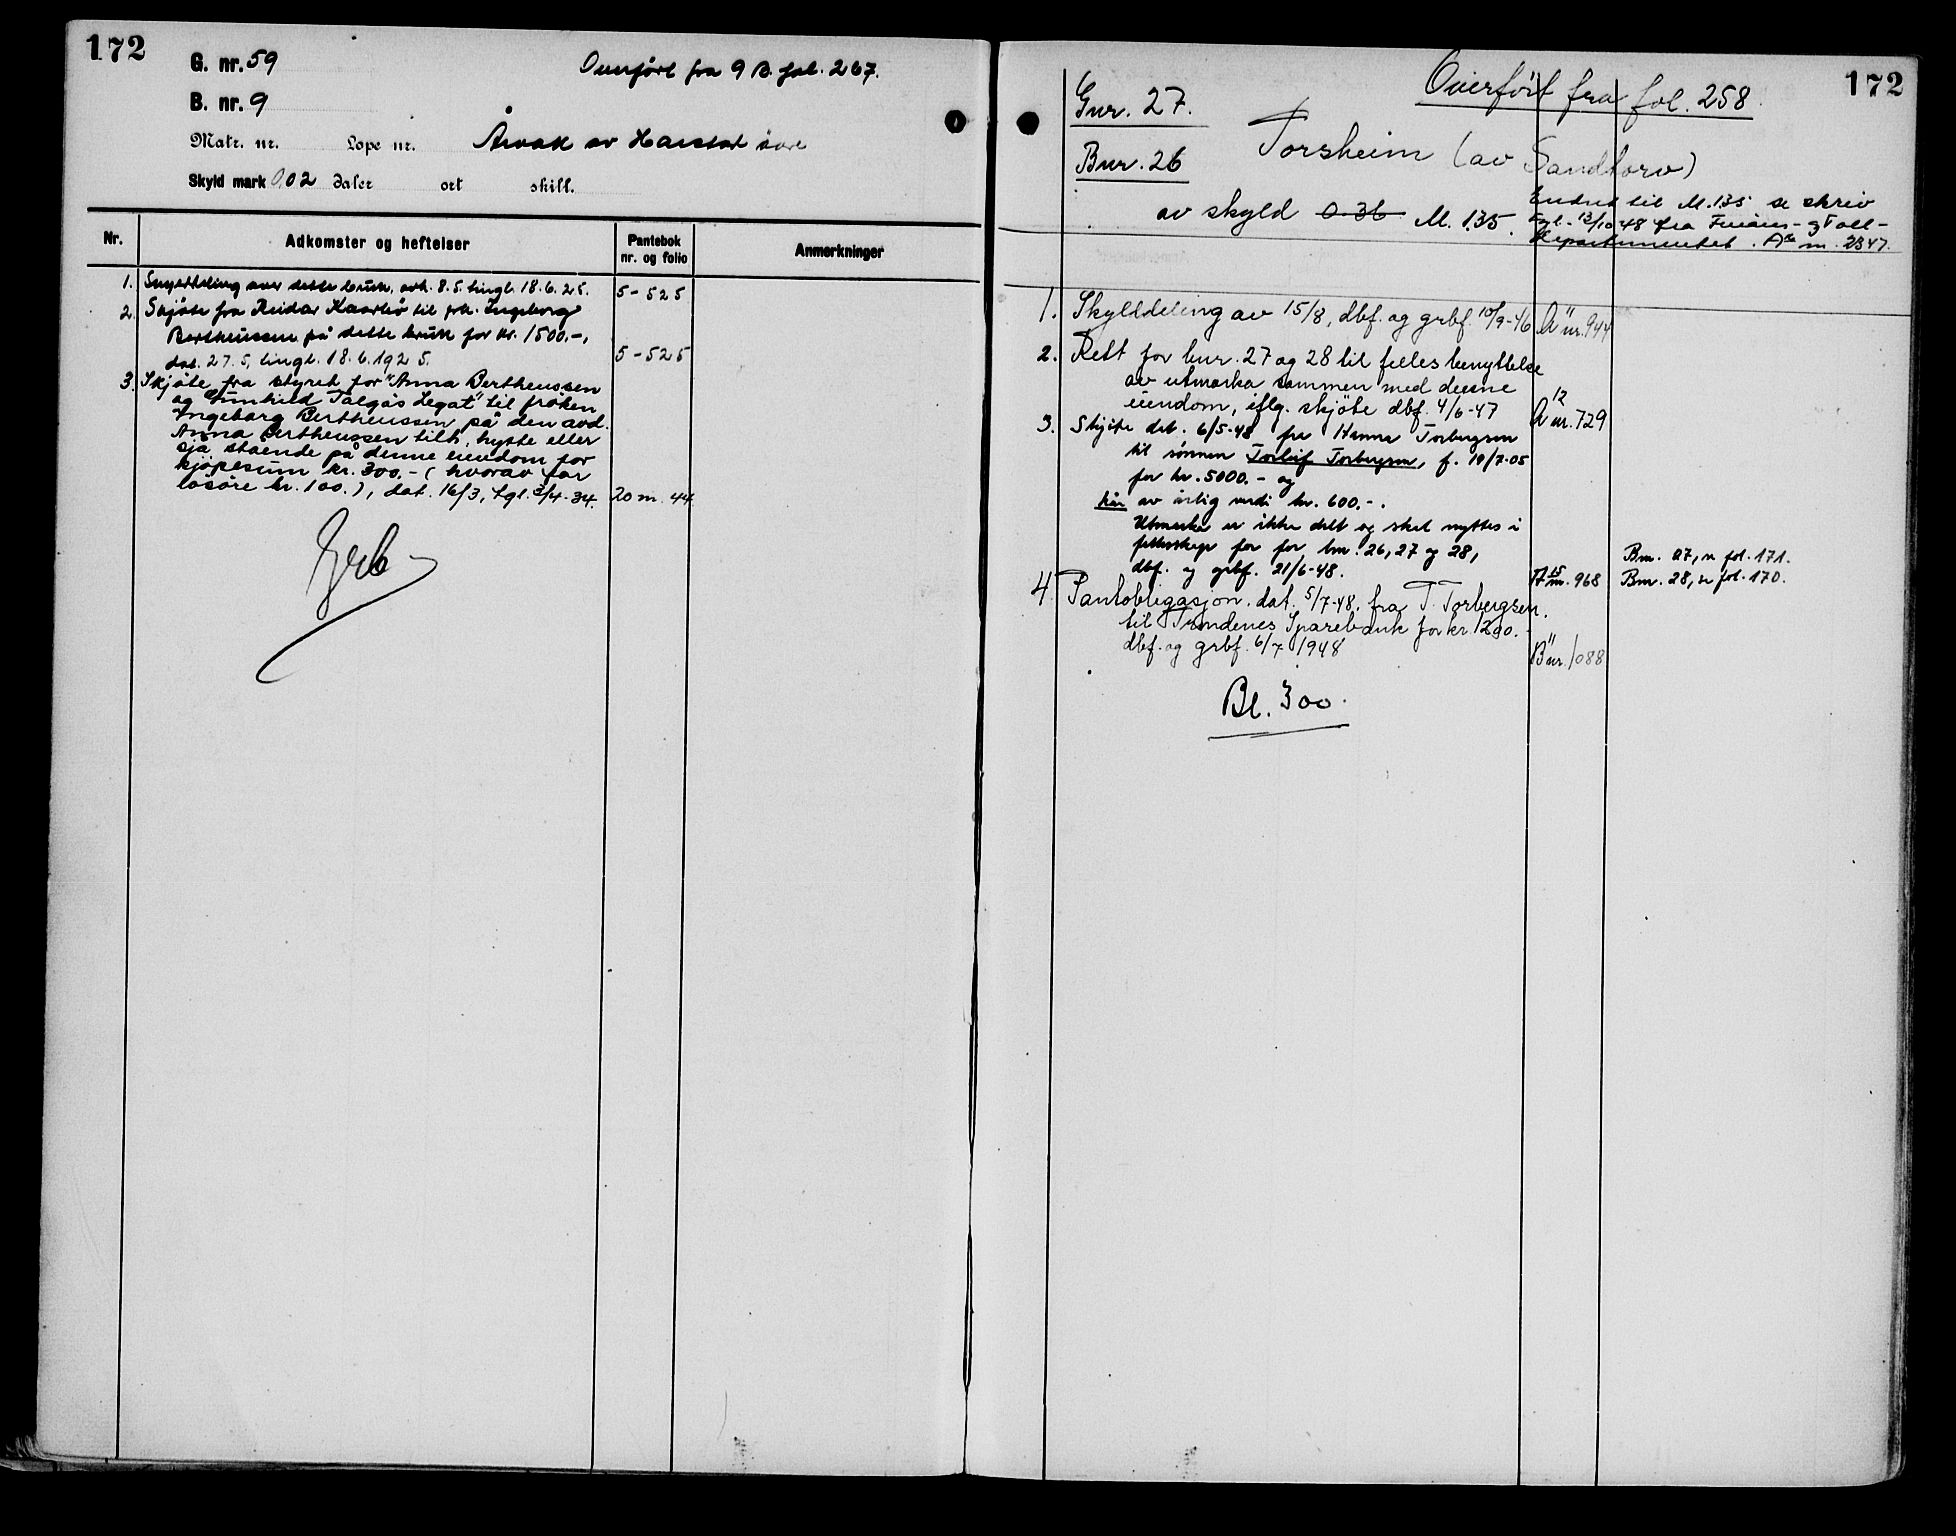 172
G. nr. 59
Overført fra 9 B. fol. 267.
B. nr. 9
Matr. nr. Løpe nr. Årvak av Harstad øvre
Skyld mark 0,02 daler ort skill.
Nr. Adkomster og heftelser Pantebok nr. og folio Anmerkninger
1. Skylddeling over dette bruk, avh. 8.5. tingl. 18.6.25. 5-525
2. Skjøte fra Reidar Kaarbø til frk. Ingeborg
Bertheussen på dette bruk for kr. 1500.-,
dat. 27.5, tingl. 18.6.1925. 5-525
3. Skjøte fra styret for "Anna Bertheussen
og Gunhild Talgøs Legat" til frøken
Ingeborg Bertheussen på den avd.
Anna Bertheussen tilh. hytte eller
sjå stående på denne eiendom for
kjøpesum kr. 300.- (hvorav for
løsøre kr. 100.), dat. 16/3, tgl. 3/4-34. 20 nr. 44
172
Overført fra fol. 258
Gnr. 27.
Bnr. 26 Torsheim (av Sandtorv)
av skyld 0.36 M. 1.35.
Endret til M. 1.35 se skriv
tgl. 13/10-48 fra Finans- og Toll-
departementet. A16 nr. 2347.
1. Skylddeling av 15/8, dbf. og grbf. 10/9-46 A11 nr. 944
2. Rett for bnr. 27 og 28 til felles benyttelse
av utmarka sammen med denne
eiendom, iflg. skjøte dbf. 4/6-47 A12 nr. 729
3. Skjøte dat. 6/5-48 fra Hanna Torbergsen
til sønnen Torleif Torbergsen, f. 19/7-05
for kr. 5000.- og
kår av årlig verdi kr. 600.-.
Utmarka er ikke delt og skal nyttes i
fellesskap for for bnr. 26, 27 og 28,
dbf. og grbf. 21/6-48. A15 nr. 968
Bnr. 27, se fol. 171.
Bnr. 28, se fol. 170.
4. Pantobligasjon dat. 5/7-48. fra T. Torbergsen.
til Trondenes Sparebank for kr. 1200.-
dbf. og grbf. 6/7 1948 B11 nr. 1088
Bl. 300.